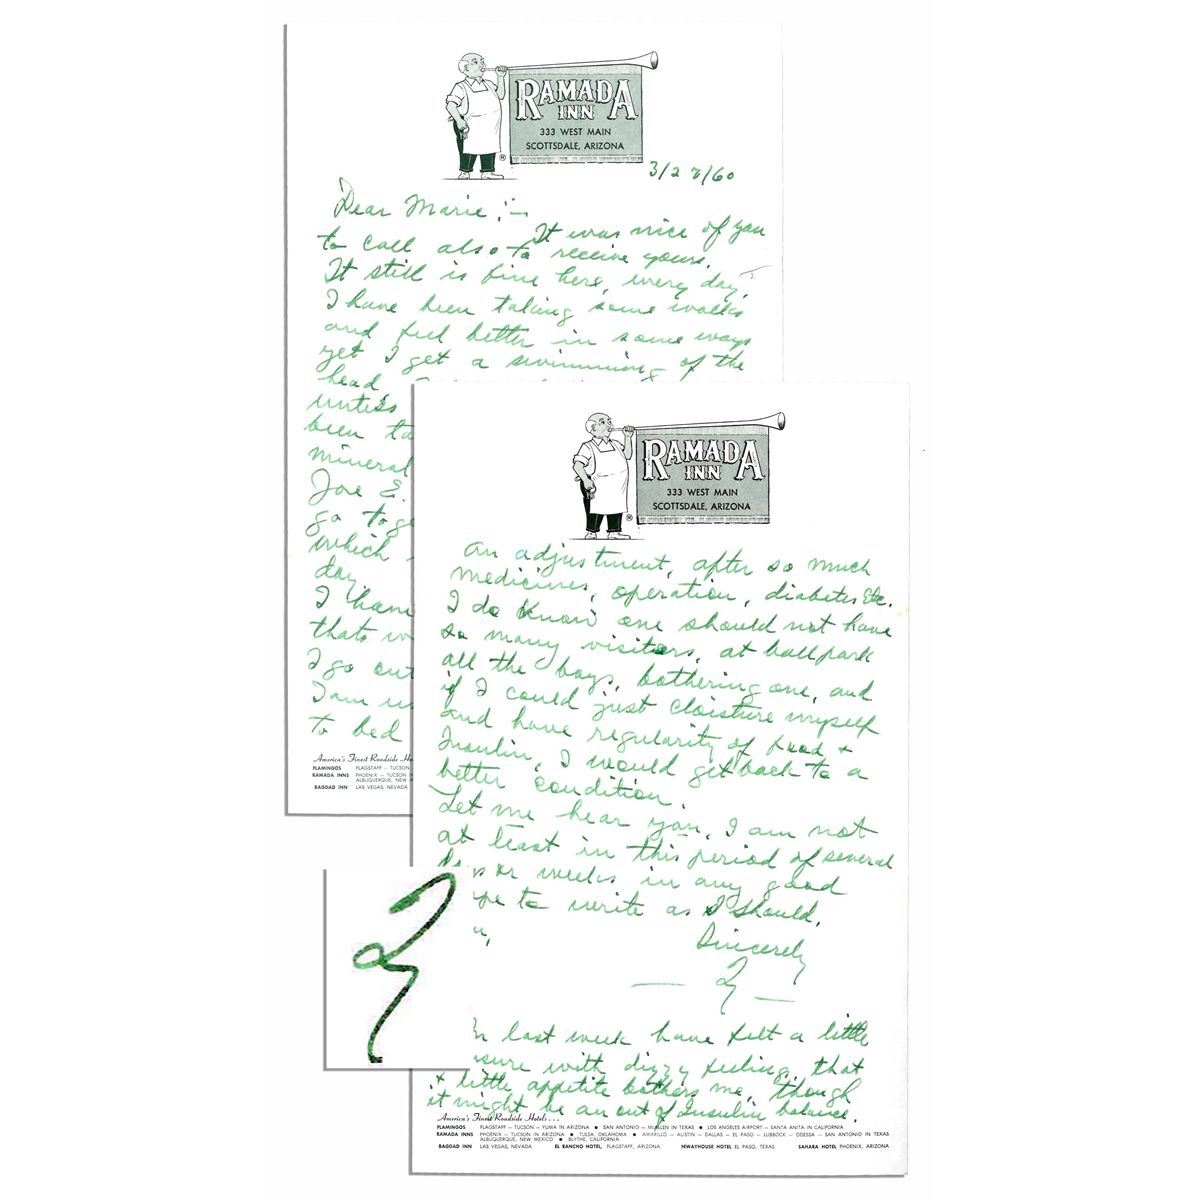 RAMADA
INN
333 WEST MAIN
SCOTTSDALE, ARIZONA
®
3/27/60
Dear Marie:-
It was nice of you
to call also to receive yours.
It still is fine here, every day,
I have been taking some walks
and feel better in some ways
yet I get a swimming of the
head
unless
been ta
mineral
Joe E.
go toge
which
day.
I have
thats w
I go out
I am us
to bed
America's Finest Roadside Ho
FLAMINGOS FLAGSTAFF — TUCSON
RAMADA INNS PHOENIX — TUCSON IN
ALBUQUERQUE, NEW M
BAGDAD INN LAS VEGAS, NEVADA
RAMADA
INN
333 WEST MAIN
SCOTTSDALE, ARIZONA
®
an adjustment, after so much
medicines, operation, diabetes etc.
I do know one should not have
so many visitors, at ball park
all the boys, bothering one, and
if I could just cloisture myself
and have regularity of food +
Insulin, I would get back to a
better condition.
Let me hear you, I am not
at least in this period of several
or weeks in any good
pe to write as I should.
u,
Sincerely
— Ty —
Ty
In last week have felt a little
sure with dizzy feeling, that
+ little appetite bothers me, though
it might be an out of Insulin balance.
America's Finest Roadside Hotels . . .
FLAMINGOS FLAGSTAFF — TUCSON — YUMA IN ARIZONA ● SAN ANTONIO — McALLEN IN TEXAS ● LOS ANGELES AIRPORT — SANTA ANITA IN CALIFORNIA
RAMADA INNS PHOENIX — TUCSON IN ARIZONA ● TULSA, OKLAHOMA ● AMARILLO — AUSTIN — DALLAS — EL PASO — LUBBOCK — ODESSA — SAN ANTONIO IN TEXAS
ALBUQUERQUE, NEW MEXICO ● BLYTHE, CALIFORNIA
BAGDAD INN LAS VEGAS, NEVADA EL RANCHO HOTEL, FLAGSTAFF, ARIZONA HIWAYHOUSE HOTEL EL PASO, TEXAS SAHARA HOTEL PHOENIX, ARIZONA